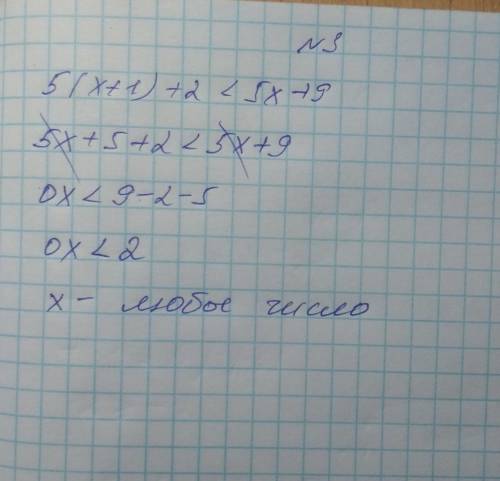 №3
5(x+1)+2<5x+9
5x+5+2<5x+9
0x<9-2-5
0x<2
x - любое число